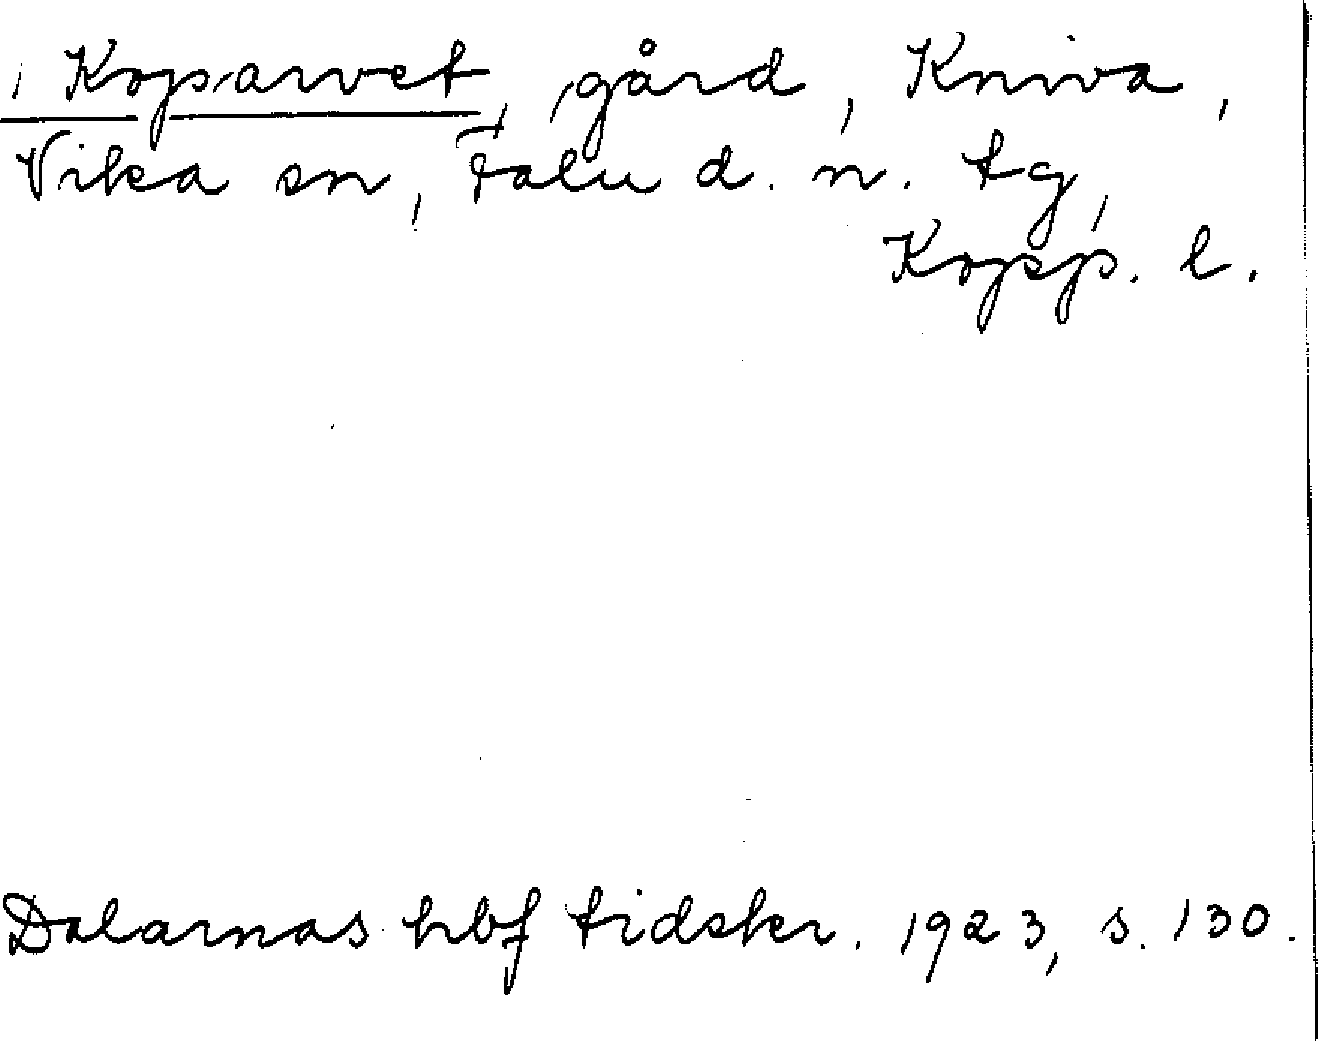 Koparvet, gård, Kniva,
Vika sn, Falu d. n. tg,
Kopp. l.
Dalarnas hbf tidskr. 1923, s. 130.